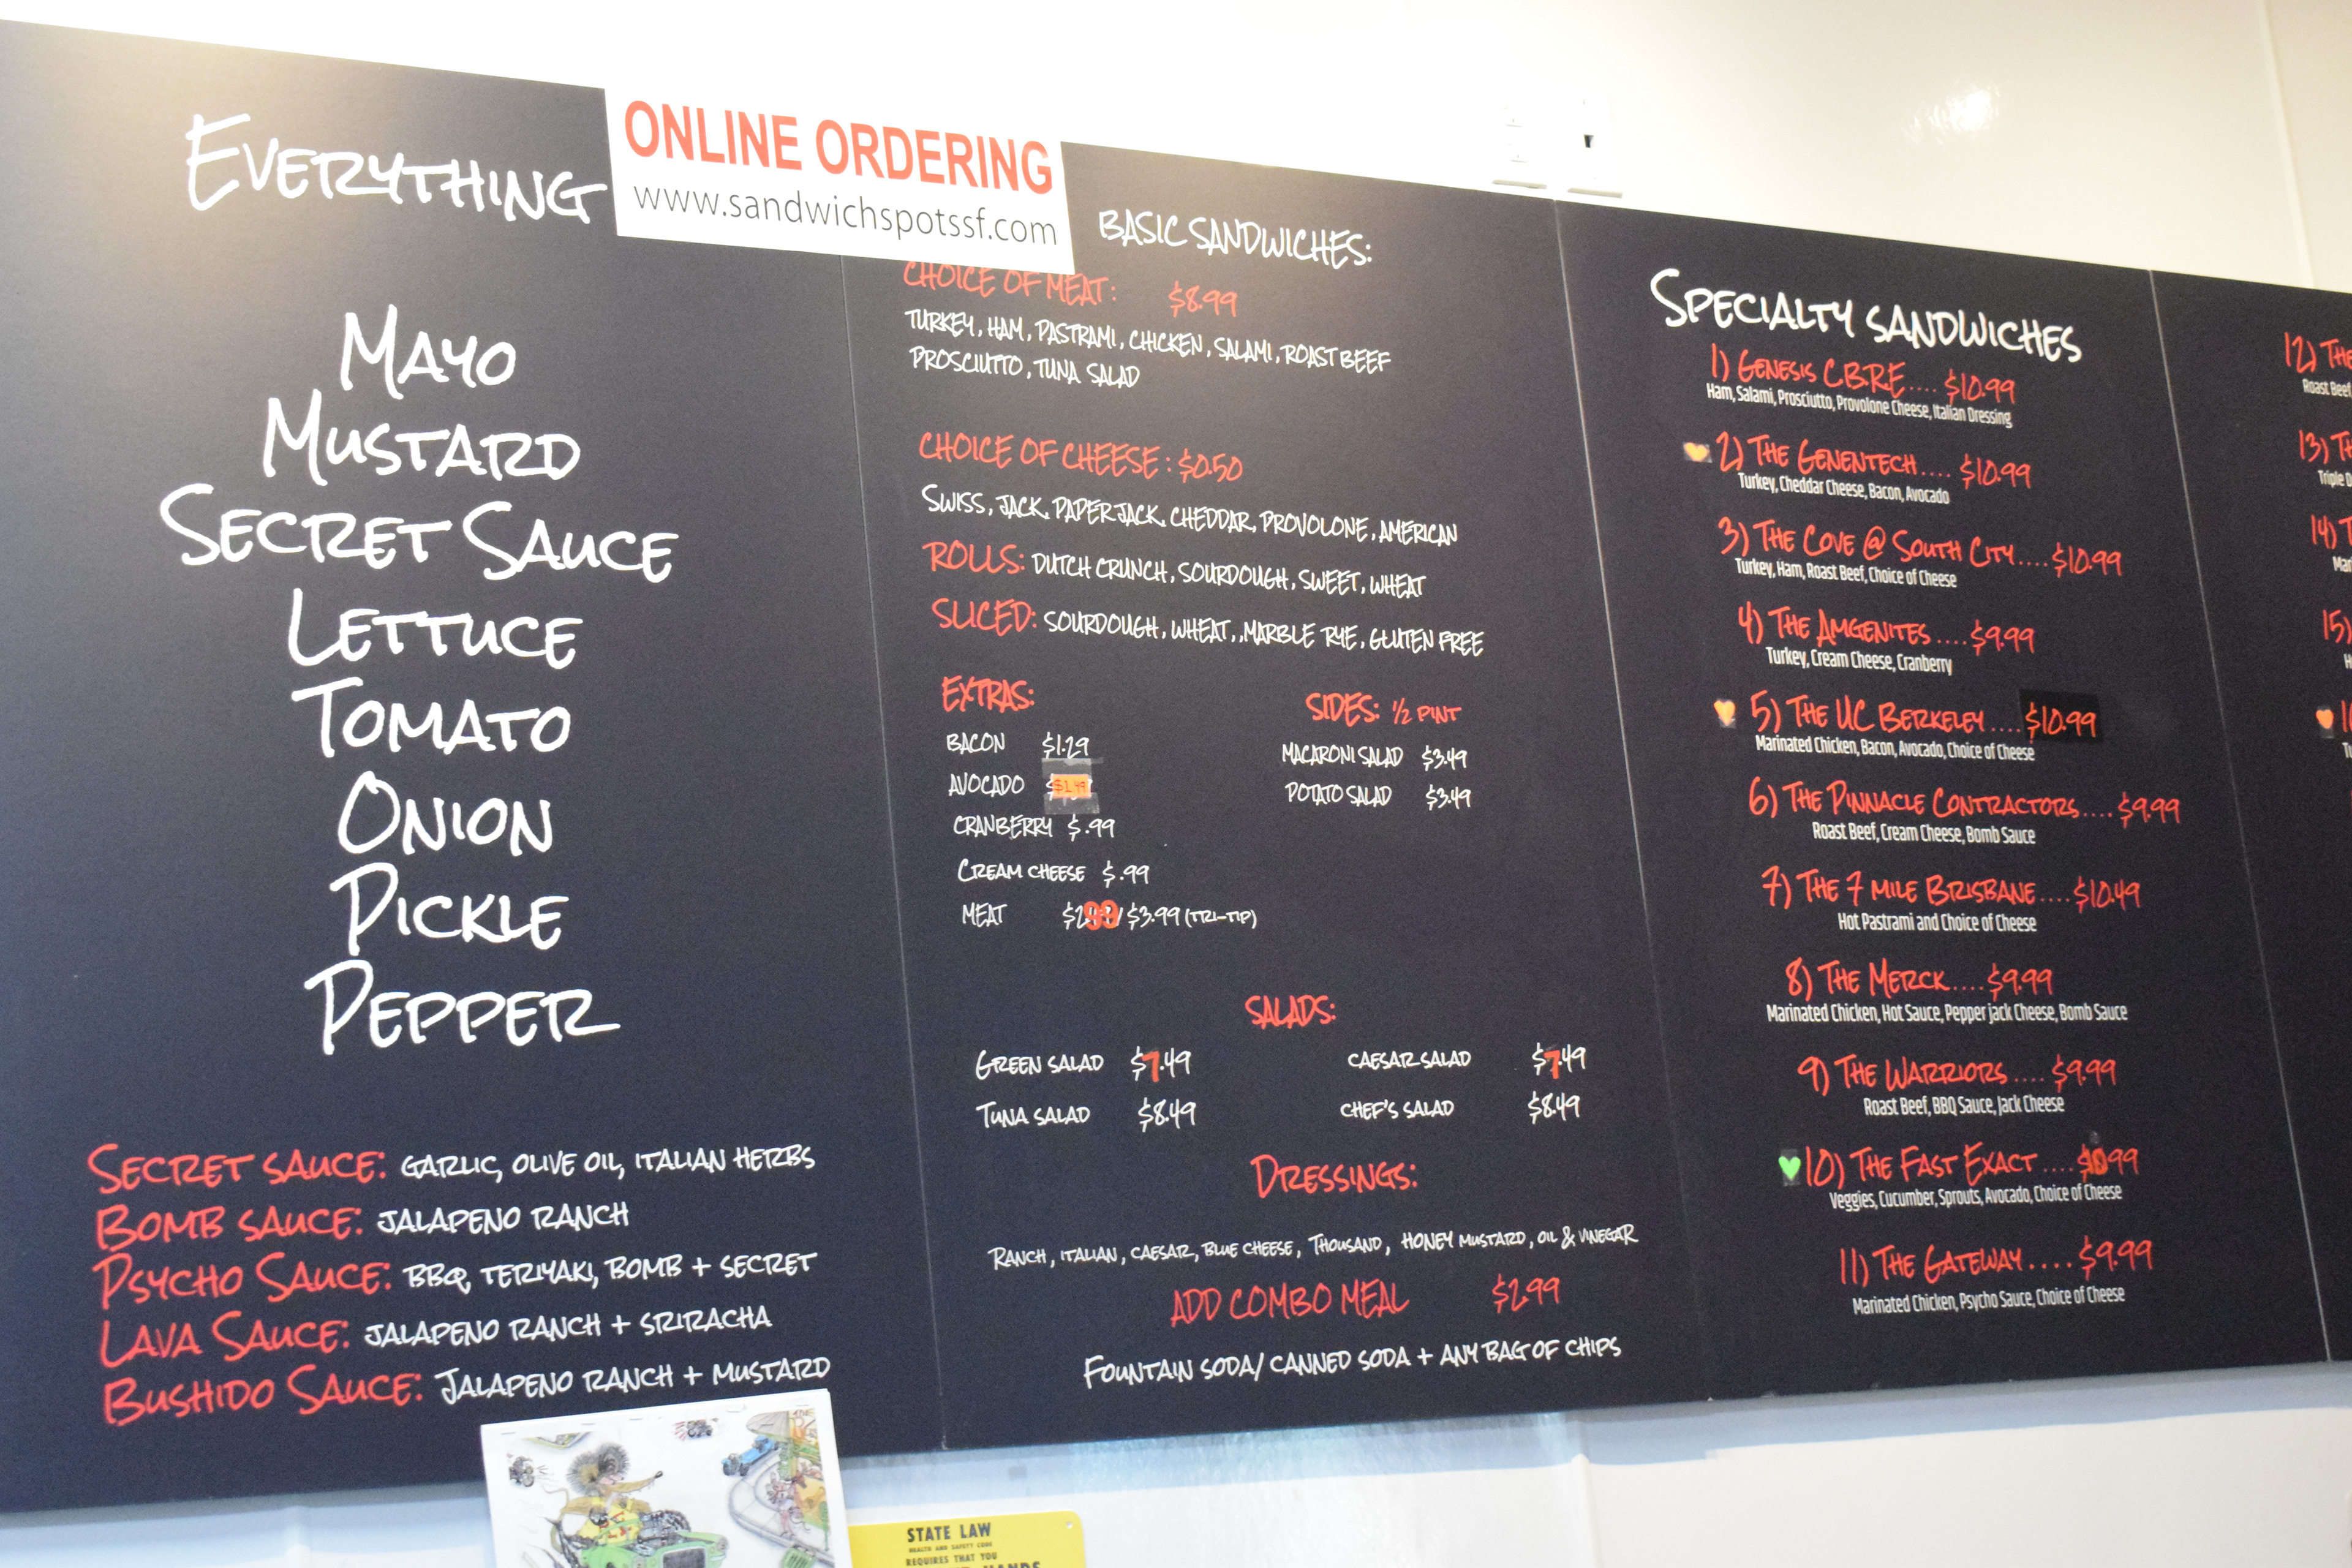 EVERYTHING
MAYO
MUSTARD
SECRET SAUCE
LETTUCE
TOMATO
ONION
PICKLE
PEPPER
SECRET SAUCE: GARLIC, OLIVE OIL, ITALIAN HERBS
BOMB SAUCE: JALAPENO RANCH
PSYCHO SAUCE: BBQ, TERIYAKI, BOMB + SECRET
LAVA SAUCE: JALAPENO RANCH + SRIRACHA
BUSHIDO SAUCE: JALAPENO RANCH + MUSTARD
ONLINE ORDERING
www.sandwichspotssf.com
BASIC SANDWICHES:
CHOICE OF MEAT: $8.99
TURKEY, HAM, PASTRAMI, CHICKEN, SALAMI, ROAST BEEF
PROSCIUTTO, TUNA SALAD
CHOICE OF CHEESE: $0.50
SWISS, JACK, PAPER JACK, CHEDDAR, PROVOLONE, AMERICAN
ROLLS: DUTCH CRUNCH, SOURDOUGH, SWEET, WHEAT
SLICED: SOURDOUGH, WHEAT,,MARBLE RYE, GLUTEN FREE
EXTRAS:
BACON $1.29
AVOCADO $1.49
CRANBERRY $.99
CREAM CHEESE $.99
MEAT $2.99/$3.99 (TRI-TIP)
SIDES: 1/2 PINT
MACARONI SALAD $3.49
POTATO SALAD $3.49
SALADS:
GREEN SALAD $7.49 CAESAR SALAD $7.49
TUNA SALAD $8.49 CHEF'S SALAD $8.49
DRESSINGS:
RANCH, ITALIAN, CAESAR, BLUE CHEESE, THOUSAND, HONEY MUSTARD, OIL & VINEGAR
ADD COMBO MEAL $2.99
FOUNTAIN SODA/ CANNED SODA + ANY BAG OF CHIPS
SPECIALTY SANDWICHES
1) GENESIS CBRE.... $10.99
Ham, Salami, Prosciutto, Provolone Cheese, Italian Dressing
2) THE GENENTECH.... $10.99
Turkey, Cheddar Cheese, Bacon, Avocado
3) THE COVE @ SOUTH CITY....$10.99
Turkey, Ham, Roast Beef, Choice of Cheese
4) THE AMGENITES ....$9.99
Turkey, Cream Cheese, Cranberry
5) THE UC BERKELEY ....$10.99
Marinated Chicken, Bacon, Avocado, Choice of Cheese
6) THE PINNACLE CONTRACTORS....$9.99
Roast Beef, Cream Cheese, Bomb Sauce
7) THE 7 MILE BRISBANE ....$10.49
Hot Pastrami and Choice of Cheese
8) THE MERCK....$9.99
Marinated Chicken, Hot Sauce, Pepper jack Cheese, Bomb Sauce
9) THE WARRIORS .... $9.99
Roast Beef, BBQ Sauce, Jack Cheese
10) THE FAST EXACT ....$10.99
Veggies, Cucumber, Sprouts, Avocado, Choice of Cheese
11) THE GATEWAY .... $9.99
Marinated Chicken, Psycho Sauce, Choice of Cheese
12) THE
Roast Beef
13)
Triple
14)
15)
STATE LAW
HEALTH AND SAFETY CODE
REQUIRES THAT YOU
HANDS